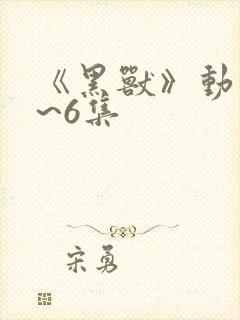 《黑獸》動
~6集
宋勇